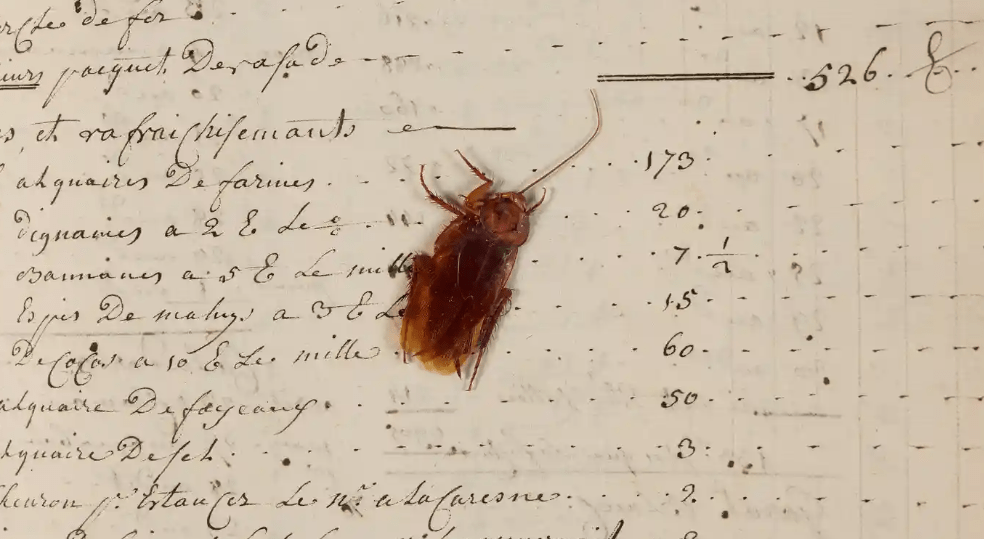 de fer
pacquet De rasade 526 ℔
et rafraichisemants
alquaires De farines 173
Dignames a 2 ℔ Le 20
Bannanes a 5 ℔ Le mille 7 1/2
Espis De mahys a 3 ℔ Le 15
De Cocos a 10 ℔ Le mille 60
alquaire De fayeaux 50
alquaire De sel 3
Le a la Caresne